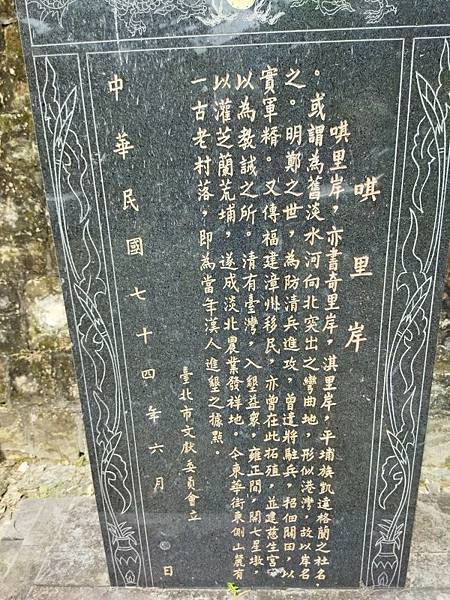 唭里岸
唭里岸，亦書奇里岸，淇里岸，平埔族凱達格蘭之社名
。或謂為舊淡水河向北突出之彎曲地，形似港灣，故以岸名
之。明鄭之世，為防清兵進攻，曾遣將駐兵，招佃開田，以
實軍糈。又傳福建漳州移民，亦曾在此拓殖，並建慈生宮
以為教誠之所。清有臺灣，入墾益衆。雍正間，開七星墩，
以灌芝蘭荒埔，遂成淡北農業發祥地。今東華街東側山麓有
一古老村落，即為當年漢人進墾之據點。
臺北市文献委員會立
中華民國七十四年六月 日